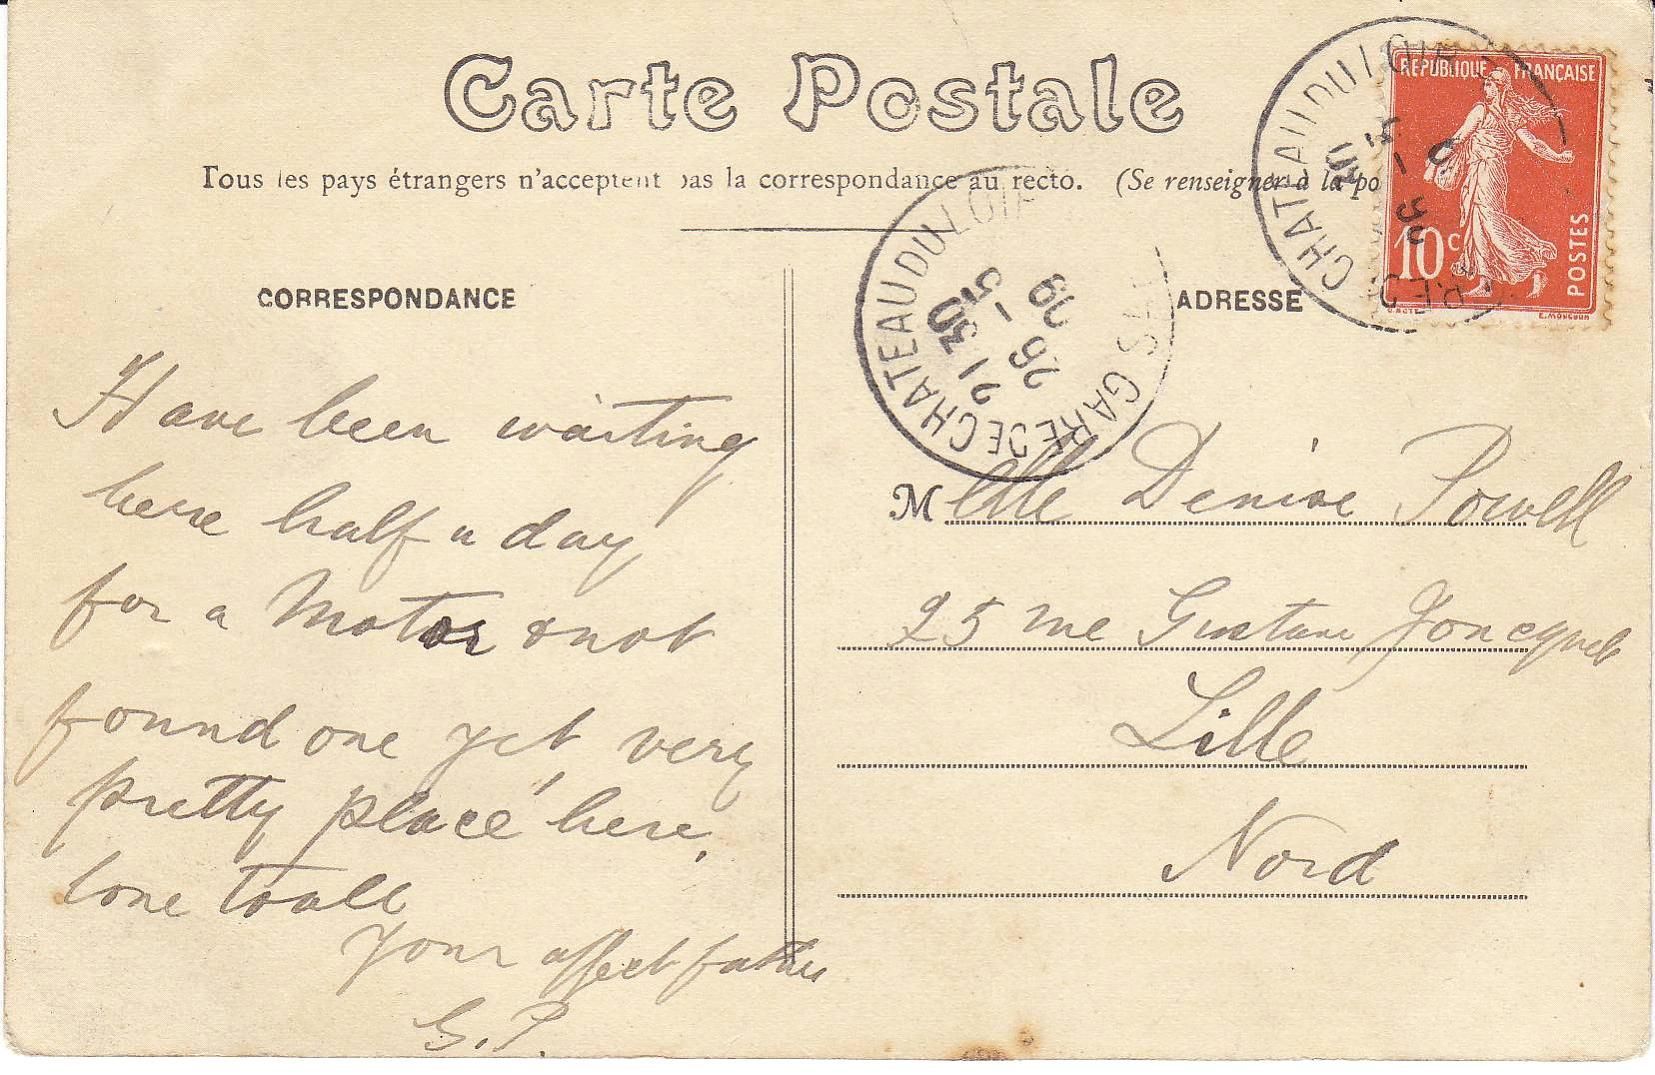 Carte Postale
Tous les pays étrangers n'acceptent pas la correspondance au recto. (Se renseigner à la po
CORRESPONDANCE
Have been waiting
here half a day
for a Motor & not
found one yet, very
pretty place here,
love to all
Your affect father
G.P.
ADRESSE
Mlle Denise Powell
25 rue Gustave Joncquet
Lille
Nord
REPUBLIQUE FRANÇAISE
10c
POSTES
O. ROTY
E. MOUCHON
CHATEAU DU LOIR
GARE DE CHATEAU DU LOIR SAR
21 30
26 - 5
09